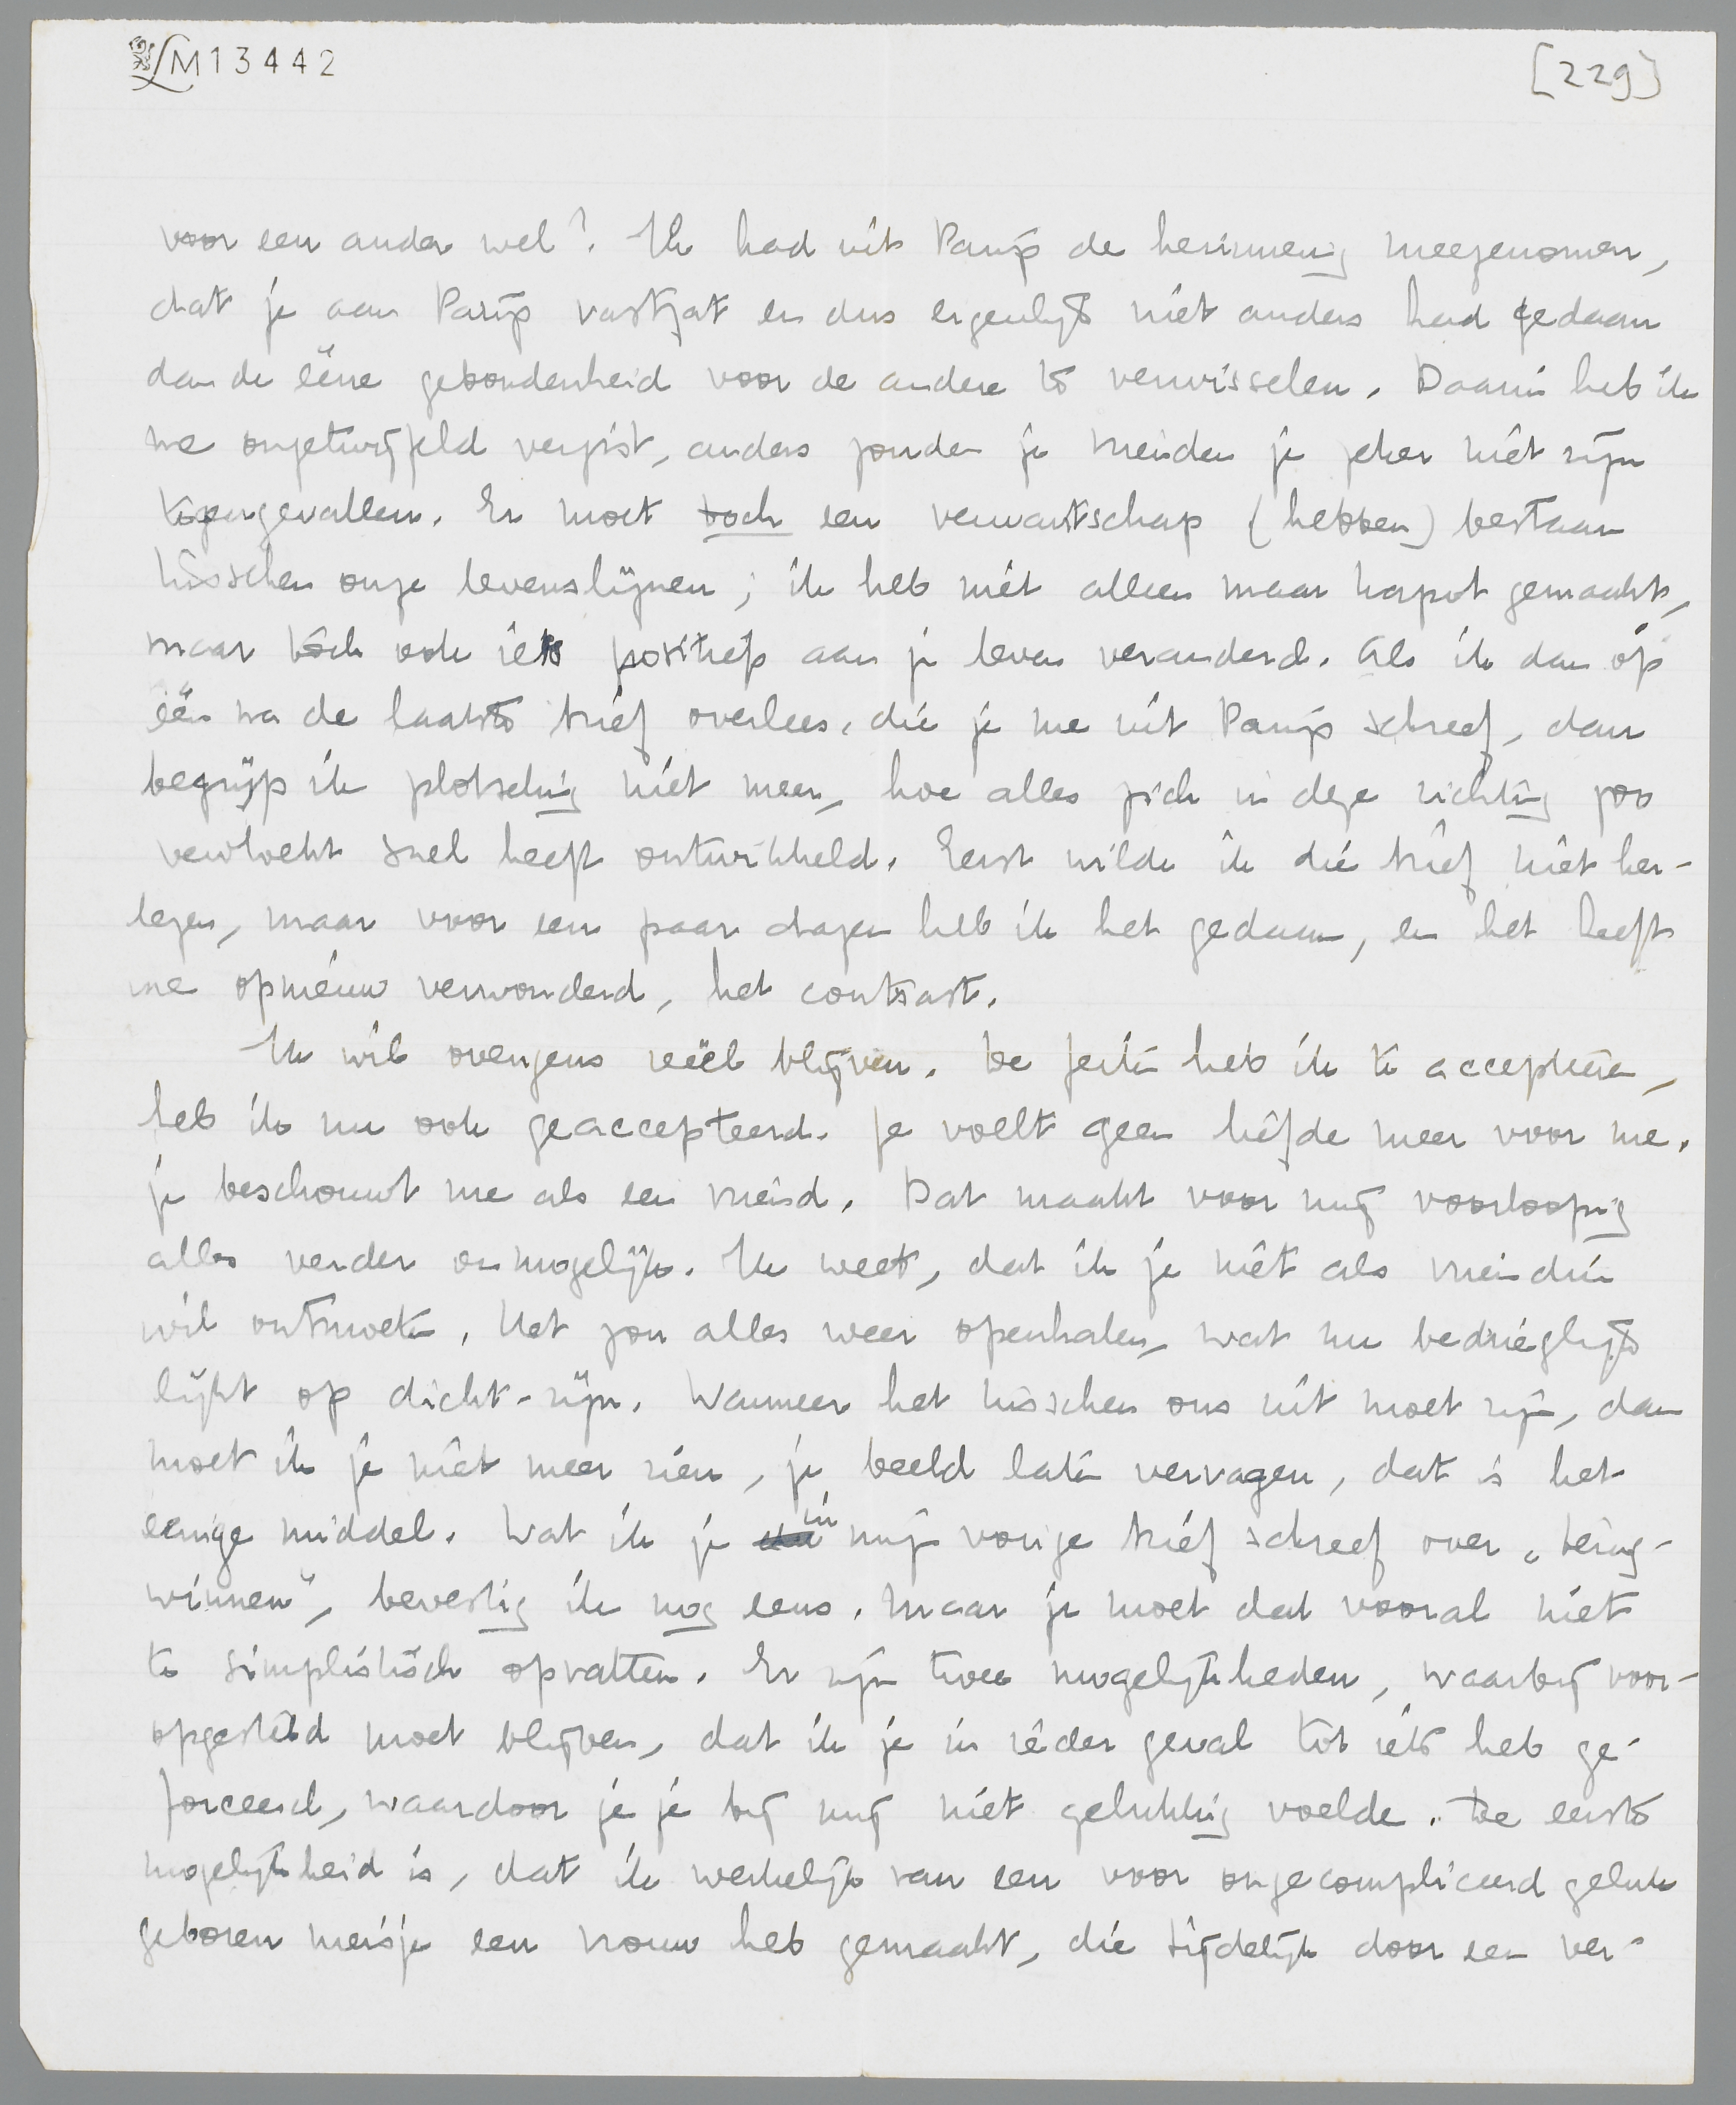 LM13442
[229]
voor een ander wel? Ik had uit Parijs de herinnering meegenomen,
dat je aan Parijs vastzat en dus eigenlijk niet anders had gedaan
dan de ééne gebondenheid voor de andere te verwisselen. Daarin heb ik
me ongetwijfeld vergist, anders zouden je vrienden je zeker niet zijn
tegengevallen. Er moet toch een verwantschap (hebben) bestaan
tusschen onze levenslijnen; ik heb niet alleen maar kapot gemaakt,
maar toch ook iets positiefs aan je leven veranderd. Als ik dan op
één na de laatste brief overlees, die je me uit Parijs schreef, dan
begrijp ik plotseling niet meer, hoe alles zich in deze richting zoo
vervloekt snel heeft ontwikkeld. Eerst wilde ik die brief niet her-
lezen, maar voor een paar dagen heb ik het gedaan, en het heeft
me opnieuw verwonderd, het contrast.
Ik wil overigens reëel blijven. De feiten heb ik te accepteeren,
heb ik nu ook geaccepteerd. Je voelt geen liefde meer voor me,
je beschouwt me als een vriend. Dat maakt voor mij voorloopig
alles verder onmogelijk. Ik weet, dat ik je niet als vriendin
wil ontmoeten. Het zou alles weer openhalen, wat nu bedrieglijk
lijkt op dicht-zijn. Wanneer het tusschen ons uit moet zijn, dan
moet ik je niet meer zien, je beeld laten vervagen, dat is het
eenige middel. Wat ik je in mijn vorige brief schreef over „terug-
winnen", bevestig ik nog eens. Maar je moet dat vooral niet
te simplistisch opvatten. Er zijn twee mogelijkheden, waarbij voor-
opgesteld moet blijven, dat ik je in ieder geval tot iets heb ge-
forceerd, waardoor je je bij mij niet gelukkig voelde. De eerste
mogelijkheid is, dat ik werkelijk van een voor ongecompliceerd geluk
geboren meisje een vrouw heb gemaakt, die tijdelijk door een ver-